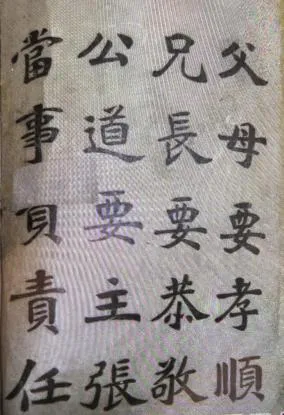 父母要孝順
兄長要恭敬
公道要主張
當事負責任